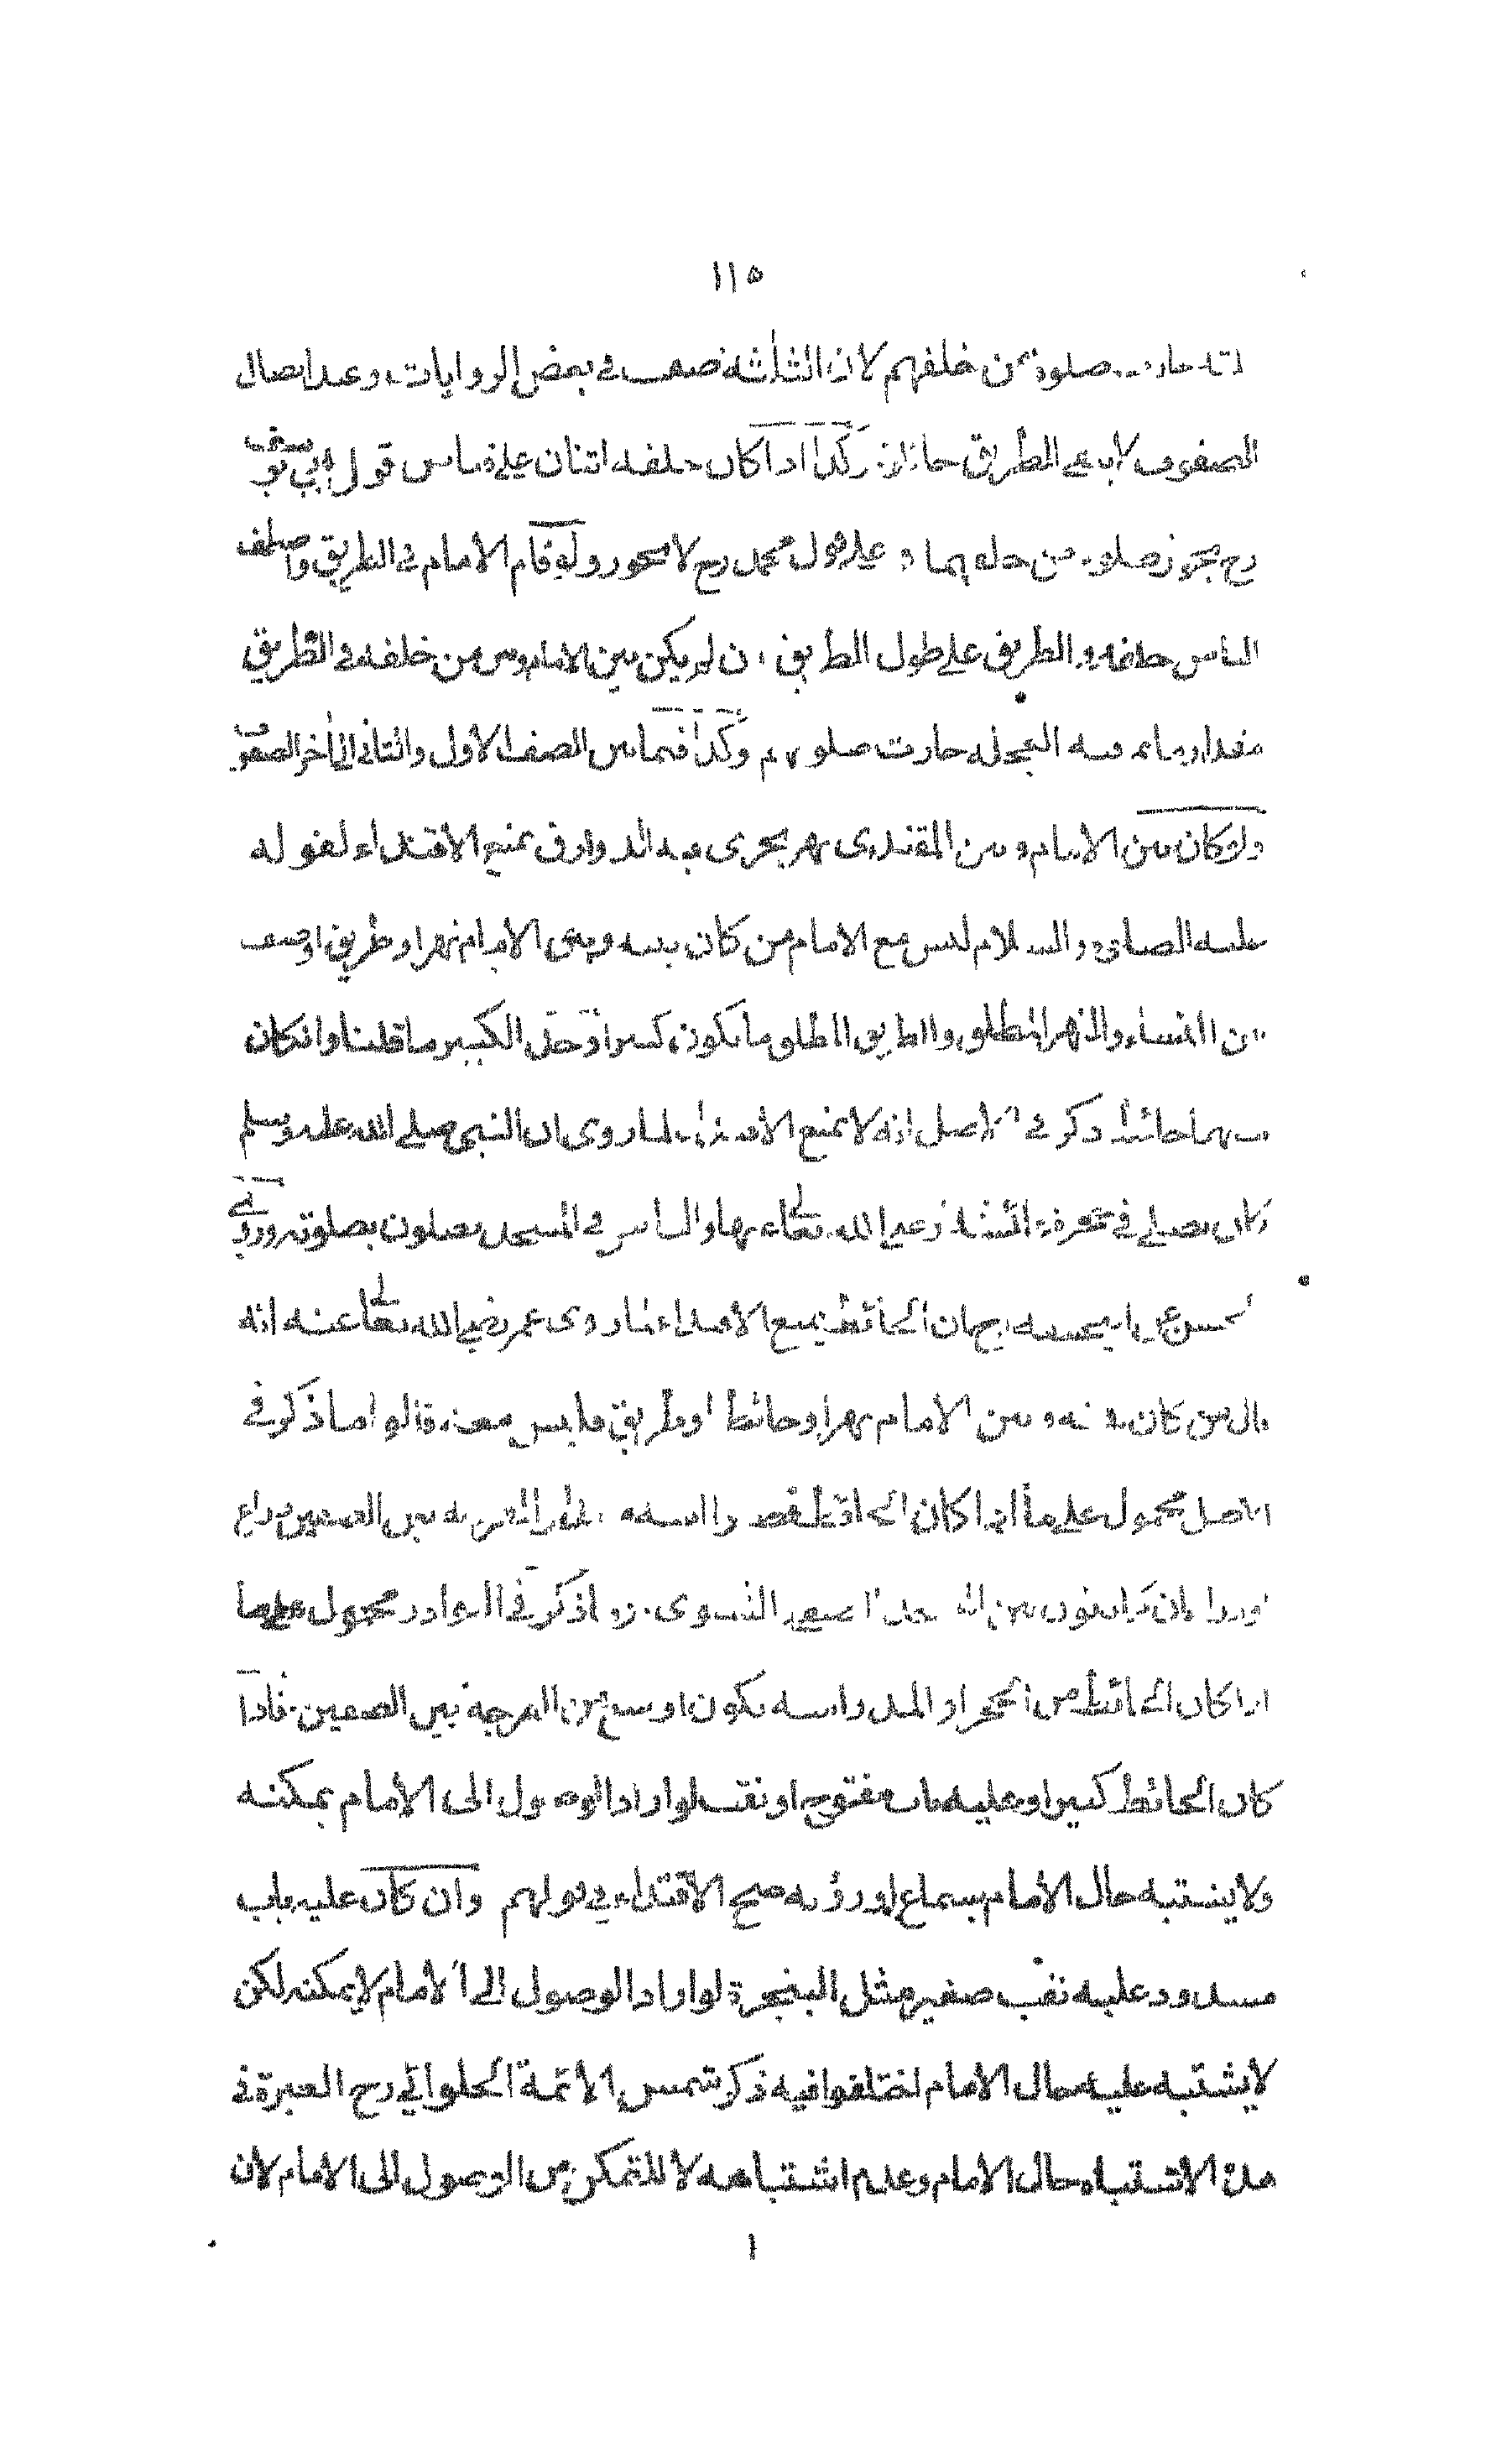 ١١٥
صلوة من خلفهم لان الثلثة صف في بعض الروايات وعند اتصال
الصفوف لا يبقى الطريق حائلا وكذا اذا كان خلفه اثنان على قياس قول ابي يوسف
رح يجوز صلوة من خلفهما وعلى قول محمد رح لا يجوز ولو قام الامام في الطريق واصطف
الناس خلفه في الطريق على طول الطريق ان لم يكن بين الامام وبين من خلفه في الطريق
مقدار ما يمر فيه العجلة جازت صلوتهم وكذا فيما بين الصف الاول والثاني الى آخر الصفوف
ولو كان بين الامام وبين المقتدى نهر يجرى فيه الزورق يمنع الاقتداء لقوله
عليه الصلوة والسلام ليس مع الامام من كان بينه وبين الامام نهر او طريق او صف
من النساء والنهر المطلق والطريق المطلق ما يكون كبيرا وحد الكبير ما قلنا وان كان
بينهما حائط ذكر في الاصل انه لا يمنع الاقتداء لما روى ان النبي صلى الله عليه وسلم
كان يصلي في حجرة عائشة رضي الله تعالى عنها والناس في المسجد يصلون بصلوته وروى
الحسن عن ابي حنيفة رح ان الحائط يمنع الاقتداء لما روى عمر رضي الله تعالى عنه انه
قال من كان بينه وبين الامام نهر او حائط او طريق فليس معه قالوا ما ذكر في
الاصل محمول على ما اذا كان الحائط قصيرا بين الصفين
ذكر في النوادر محمول على ما
اذا كان الحائط من الحجر او المدر واسعه يكون اوسع من الفرجة بين الصفين فاذا
كان الحائط كبيرا وعليه باب مفتوح او نقب لو اراد الوصول الى الامام يمكنه
ولا يشتبه حال الامام بسماع او رؤية صح الاقتداء في قولهم وان كان عليه باب
مسدود عليه نقب صغير مثل البنجرة لو اراد الوصول الى الامام لا يمكنه لكن
لا يشتبه عليه حال الامام اختلفوا فيه ذكر شمس الائمة الحلوائي رح العبرة في
هذا الاشتباه حال الامام وعدم اشتباهه لا للتمكن من الوصول الى الامام لان
١